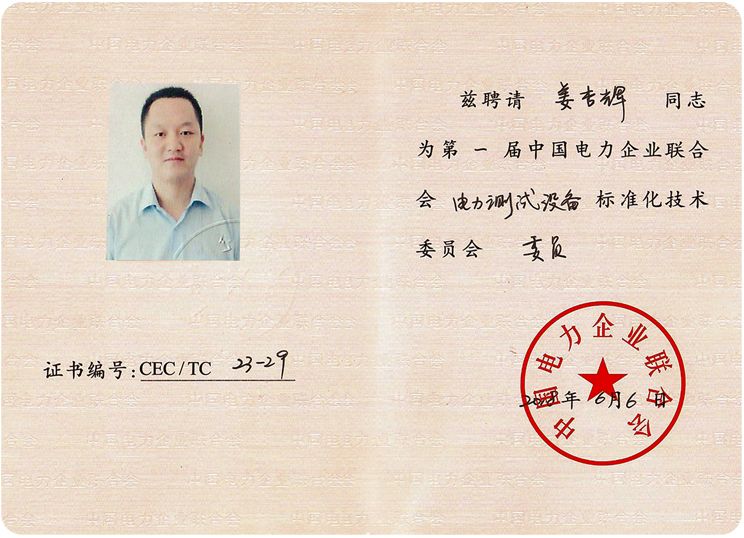 证书编号:CEC/TC 23-29
兹聘请 姜杏辉 同志
为第一届中国电力企业联合
会 电力测试设备 标准化技术
委员会 委员
中国电力企业联合会
2018年6月6日